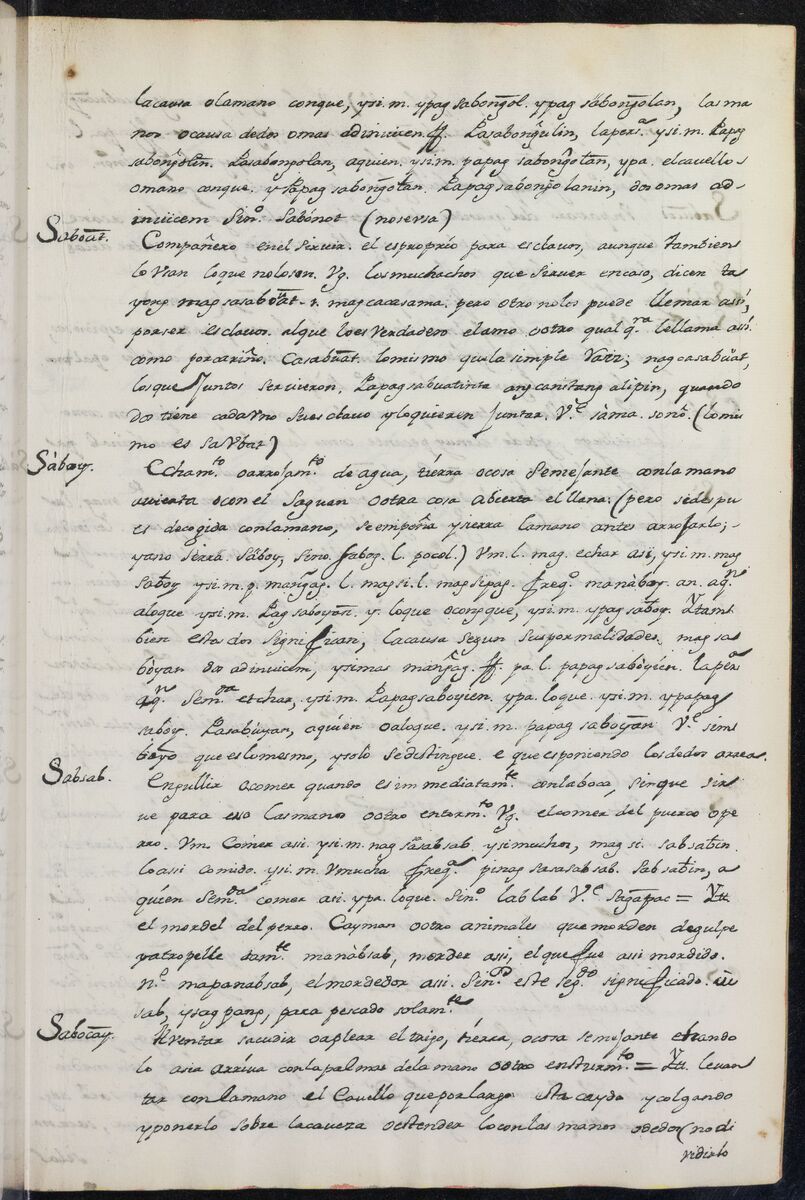 la causa o la mano conque, y si. m. ypag sabongol. ypag sabongolan, las ma
nos o causa de dos o mas adinvicem ff. Pasabongulin, la pers.ª y si. m. Papag
sabongolin. Pasabongolan, a quien. y si. m. papag sabongotan, ypa. el cavello s
o mano conque. y Papag sabongotan. Papag sabongolanin, dos o mas ad-
invicem Sin.º Sabónot (no se usa)
Saboat.
Compañero en el servir. el es proprio para esclavos, aunque tambien
lo usan los que no lo son. Vg. los muchachos que sirven en casa, dicen ta
yong magsasaboat. r. magcacasama. pero otro no los puede llamar assi,
por ser esclavos. al que lo es verdadero el amo u otro qualq.ra le llama assi
como por cariño. Casabuat. lo mismo que la simple Vair; magcasabuat,
los que juntos sirvieron. Papagsabuatinta ang canitang alipin, quando
dos tiene cada uno su esclavo y lo quieren juntar. V.e sama. sonò. (lo mis
mo es saubat)
Sàboy.
Echam.to o arrojam.to de agua, tierra o cosa semejante con la mano
avierta o con el jaguan u otra cosa abierta el llana. (pero si despu
es de cogida con la mano, se empeña y sierra la mano antes arrojarlo;
ya no será. Sàboy, sino. saboy. l. pocol.) Vm. l. mag. echar asi, y si. m. mag
saboy y si. m. p. mangag. l. magsi. l. magsipag. freq.º manàboy. an. aq.n
a loque y si. m. Pagsaboyan. y. loque o conque, y si. m. ypag saboy. Ytam
bien estas dos significan, la causa segun sus formalidades. magsa
boyan dos adinvicem, y si mas mangag. ff. pa. l. papagsaboyien. la pers.ª
aq.n sem.da echar, y si. m. Papagsaboyien. ypa. loque. y si. m. ypapag
saboy. Pasabúyan, a quien o a loque. y si. m. papag saboyan V.e sim
boyo que es lo mesmo, y solo se distingue. e que es poniendo los dedos arrea.
Sabsab.
Engullir o comer quando es immediatam.te con la boca, sin que sir
ve para eso las manos u otro instrum.to Vg. el comer del puerco o pe
rro. Vm. Comer asi. y si. m. nag sasabsab y si muchos, magsi. sabsabin.
lo assi comido. y si. m. V mucha freq.ª pinag sasasabsab. Sabsabin, a
quien sem.da comer asi. ypa. loque. Sin.º lablab V.e sagapac = Yt.
el mordel del perro. Cayman u otro animales que morden de gulpe
y atropelle dam.te manàbsab, morder asi, el que fue asi mordido.
n.º mapanabsab, el mordedor asi. Sin.º este seg.do significado. ii
sab, ysagpang, para pescado solam.te
Sabocay.
Aventar sacudir o aplear el trigo, tierra, o cosa semejante echando
lo asia arriva con la palma dela mano u otro ensturm.to = Yt. levan
tar con la mano el Cavello que por largo esta caydo y colgando
y ponerlo sobre la caveza o estenderlo con las manos o dedos (no di
vidirlo